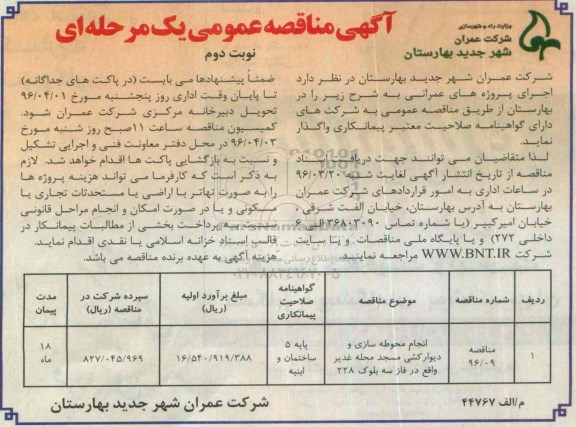 آگهی مناقصه عمومی یک مرحله‌ای
نوبت دوم
وزارت راه و شهرسازی
شرکت عمران
شهر جدید بهارستان
شرکت عمران شهر جدید بهارستان در نظر دارد
اجرای پروژه های عمرانی به شرح زیر را در
بهارستان از طریق مناقصه عمومی به شرکت های
دارای گواهینامه صلاحیت معتبر پیمانکاری واگذار
نماید.
لذا متقاضیان می توانند جهت دریافت اسناد
مناقصه از تاریخ انتشار آگهی لغایت شنبه ۹۶/۰۳/۲۰
در ساعات اداری به امور قراردادهای شرکت عمران
بهارستان به آدرس بهارستان، خیابان الفت شرقی ،
خیابان امیرکبیر (یا شماره تماس ۳۶۸۰۳۰۹۰ الی ۶
داخلی ۲۷۲) و یا پایگاه ملی مناقصات و یا سایت
شرکت WWW.BNT.IR مراجعه نمایند.
ضمناً پیشنهادها می بایست (در پاکت های جداگانه)
تا پایان وقت اداری روز پنجشنبه مورخ ۹۶/۰۴/۰۱
تحویل دبیرخانه مرکزی شرکت عمران شود.
کمیسیون مناقصه ساعت ۱۱صبح روز شنبه مورخ
۹۶/۰۴/۰۳ در محل دفتر معاونت فنی و اجرایی تشکیل
و نسبت به بازگشایی پاکت ها اقدام خواهد شد. لازم
به ذکر است که کارفرما می تواند هزینه پروژه ها
را به صورت تهاتر با اراضی یا مستحدثات تجاری یا
مسکونی و یا در صورت امکان و انجام مراحل قانونی
نسبت به پرداخت بخشی از مطالبات پیمانکار در
قالب اسناد خزانه اسلامی یا نقدی اقدام نماید.
هزینه آگهی به عهده برنده مناقصه می باشد.
ردیف شماره مناقصه موضوع مناقصه گواهینامه صلاحیت پیمانکاری مبلغ برآورد اولیه (ریال) سپرده شرکت در مناقصه (ریال) مدت پیمان
۱ مناقصه ۹۶/۰۹ انجام محوطه سازی و دیوارکشی مسجد محله غدیر واقع در فاز سه بلوک ۲۲۸ پایه ۵ ساختمان و ابنیه ۱۶/۵۴۰/۹۱۹/۳۸۸ ۸۲۷/۰۴۵/۹۶۹ ۱۸ ماه
م/الف ۴۴۷۶۷
شرکت عمران شهر جدید بهارستان